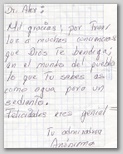 Dr. Alex:
Mil gracias, por traer
los a muchos
que Dios te bendiga,
en el mundo del pueblo
lo que tu sabes es
como agua para un
sediento.
Felicidades eres genial
Tu admiradora
Anónima